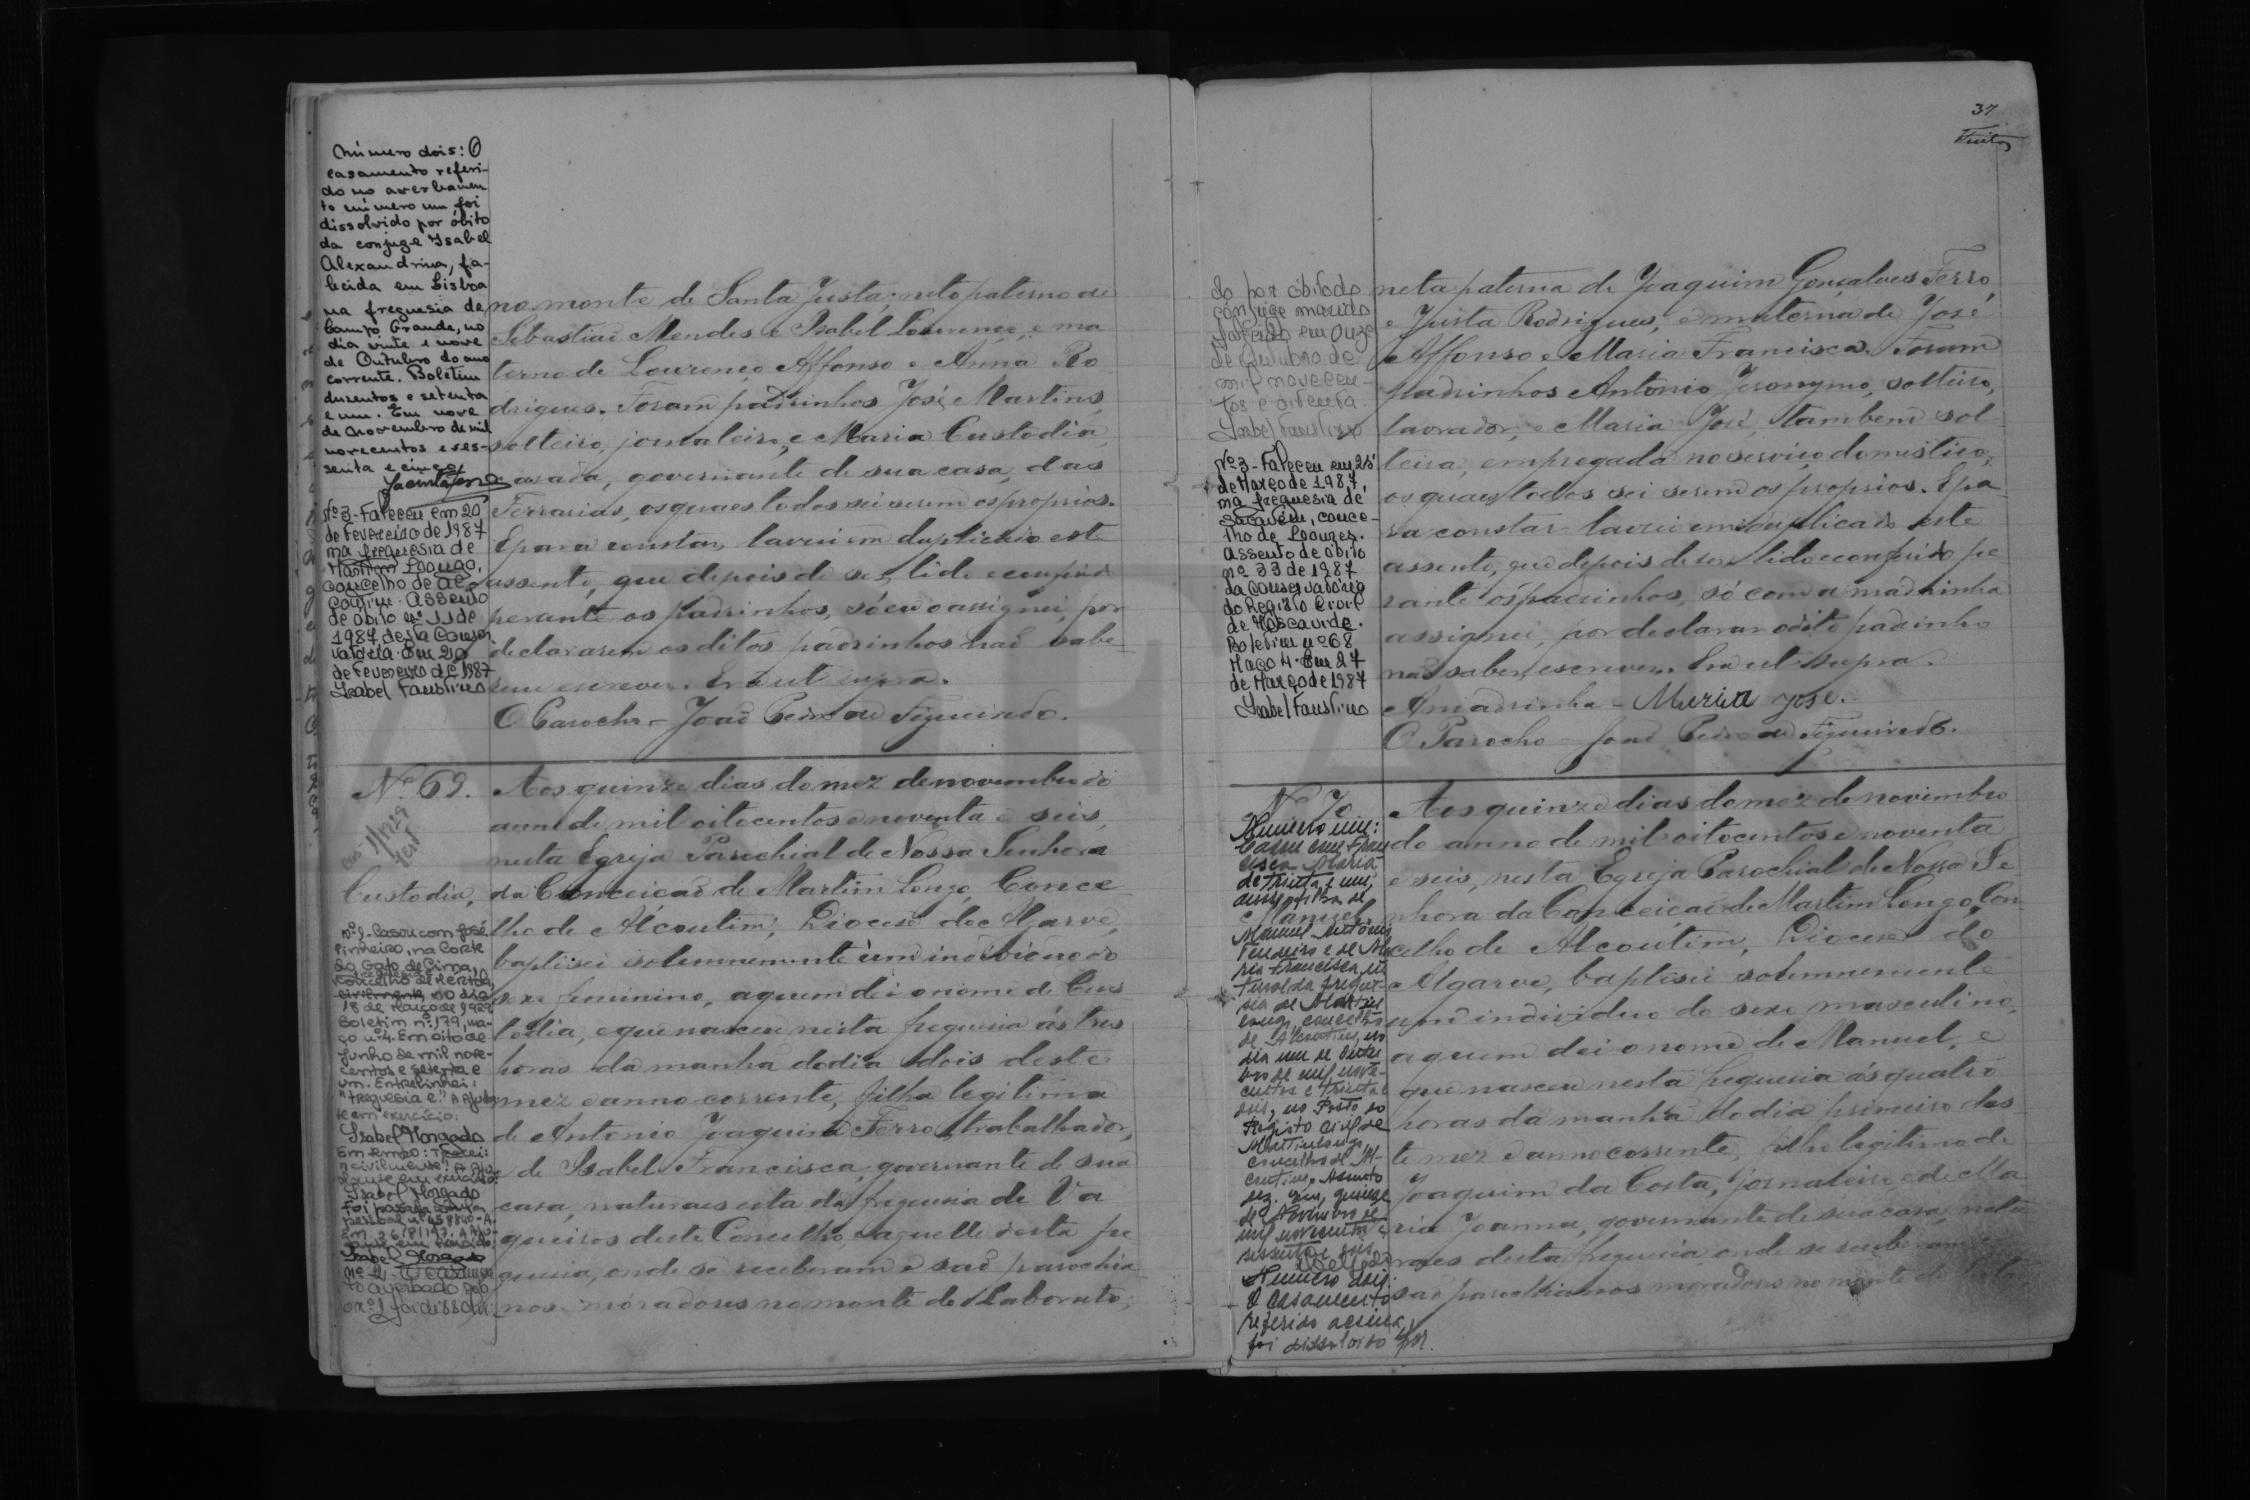 Número dois: O
casamento referi-
do no averbamen
to número um foi
dissolvido por óbito
da conjuge Isabel
Alexandrina, fa-
lecida em Lisboa
na freguesia de
Campo Grande, no
dia vinte e nove
de Outubro do ano
corrente. Boletim
duzentos e setenta
e um. Em nove
de Novembro de mil
novecentos e ses-
senta e cinco
Nº 3 - Faleceu em 20
de Fevereiro de 1987
na freguesia de
Martim Longo,
concelho de Al
coutim. Assento
de óbito nº 11 de
1987 desta Conser
vatória. Em 20
de Fevereiro de 1987
Isabel Faustino
no monte de Santa Justa; neto paterno de
Sebastião Mendes e Isabel Lourença, e ma
terno de Lourenço Affonso e Anna Ro
drigues. Foram padrinhos José Martins,
solteiro, jornaleiro, e Maria Custodia,
casada, governante de sua casa, das
Ferrarias, os quaes todos sei serem os proprios.
E para constar, lavrei em duplicado este
assento, que depois de ser lido e conferido
perante os padrinhos, só eu o assignei, por
declararem os ditos padrinhos não sabe
rem escrever. Era ut supra.
O Parocho - João Pedro de Figueiredo.
Nº 69.
Custodia,
nº 1 - Casou com José
Pinheiro, na Corte
do Gato de Cima,
concelho de Mertola,
civilmente, no dia
18 de Março de 1929
Boletim nº 179, ma-
ço nº 4. Em oito de
Junho de mil nove-
centos e setenta e
um. Entrelinhei:
"freguesia e". A Ajudan
te em exercício:
Isabel Morgado
Em tempo: Tracei:
"civilmente". A Aju
dante em exercício:
Isabel Morgado
nº 2 - O casamen
to averbado sob
o nº 1 foi dissolvi-
Aos quinze dias do mez de novembro do
anno de mil oitocentos e noventa e seis,
nesta Egreja Parochial de Nossa Senhora
da Conceição de Martim Longo, Conce
lho de Alcoutim, Diocese do Algarve,
baptisei solemnemente um individuo do
sexo feminino, a quem dei o nome de Cus
todia, e que nasceu nesta freguesia ás tres
horas da manhã do dia dois deste
mez e anno corrente, filha legitima
de Antonio Joaquim Ferro, trabalhador,
e de Isabel Francisca, governante de sua
casa, naturaes esta da freguesia de Va
queiros deste Concelho e aquelle desta fre
guesia, onde se receberam e são parochia
nos, moradores no monte do Laborato;
37
do por óbito do
conjuge marido
falecido em onze
de Outubro de
mil novecen-
tos e oitenta.
Isabel Faustino
Nº 3 - Faleceu em 25
de Março de 1987,
na freguesia de
Sacavém, conce-
lho de Loures.
Assento de óbito
nº 33 de 1987
da Conservatória
do Registo Civil
de Moscavide.
Boletim nº 68
Maço 4. Em 27
de Março de 1987
Isabel Faustino
neta paterna de Joaquim Gonçalves Ferro,
e Justa Rodrigues, e materna de José
Affonso e Maria Francisca. Foram
padrinhos Antonio Jeronymo, solteiro,
lavrador, e Maria José, tambem sol
teira, empregada no serviço domestico,
os quaes todos sei serem os proprios. E pa
ra constar lavrei em duplicado este
assento, que depois de ser lido e conferido pe
rante os padrinhos, só com a madrinha
assignei, por declarar o dito padrinho
não saber escrever. Era ut supra.
A madrinha - Maria José.
O Parocho - João Pedro de Figueiredo.
Nº 70
Numero um:
Casou com Fran
cisca Maria
de trinta e um
anos, filha de
Manuel
Manuel António
Teixeira e de Ma
ria Francisca, na
tural da fregue-
sia de Martim
Longo, concelho
de Alcoutim, no
dia um de Outu
bro de mil nove-
centos e trinta e
seis, no Posto do
Registo Civil de
Martim Longo
concelho de Al-
coutim. Assento
dez. Em, quinze
de Novembro de
mil novecentos e
sessenta e seis
Numero dois:
O casamento
referido acima,
foi dissolvido por
Aos quinze dias do mez de novembro
do anno de mil oitocentos e noventa
e seis, nesta Egreja Parochial de Nossa Se
nhora da Conceição de Martim Longo, Con
celho de Alcoutim, Diocese do
Algarve, baptisei solemnemente
um individuo do sexo masculino,
a quem dei o nome de Manuel, e
que nasceu nesta freguesia ás quatro
horas da manhã do dia primeiro des
te mez e anno corrente, filho legitimo de
Joaquim da Costa, jornaleiro, e de Ma
ria Joanna, governante de sua casa, natu
raes desta freguesia, onde se receberam e
são parochianos, moradores no monte de